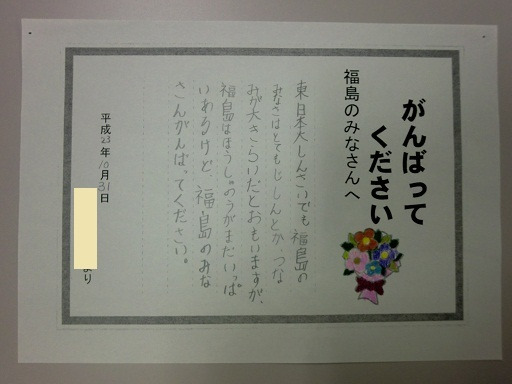 がんばって
ください
福島のみなさんへ
東日本大しんさいでも福島の
みなさはとてもじしんとかつな
みが大きらいだとおもいますが、
福島はほうし。のうがまだいっぱ
いあるけど、福島のみな
さんがんばってください。
平成23年10月31日
より